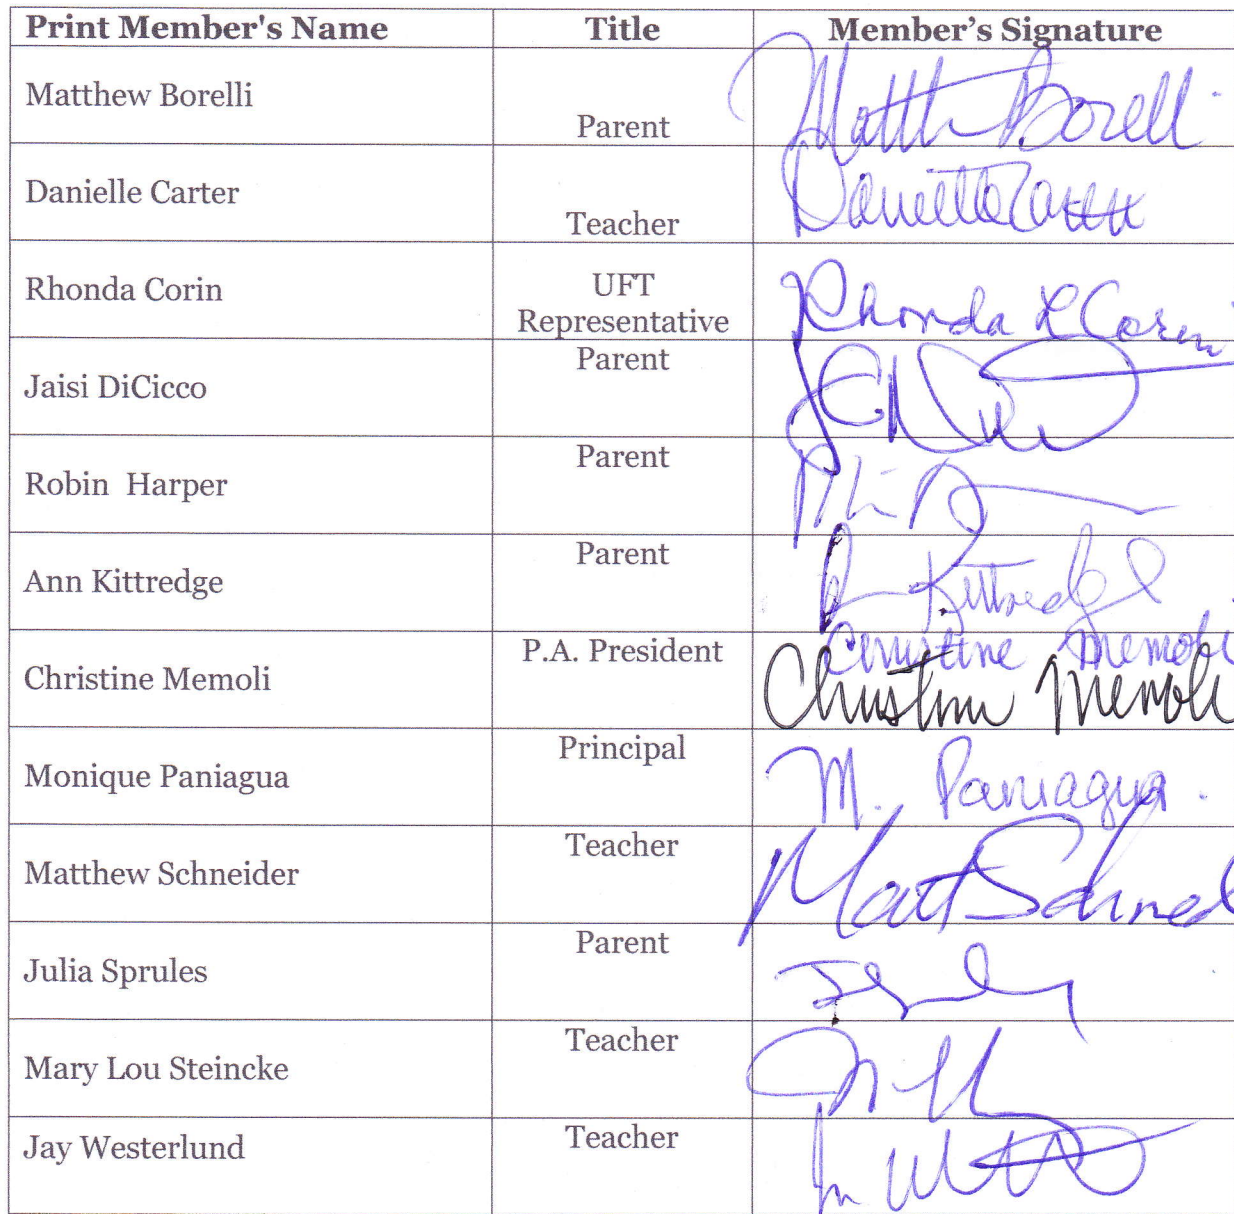 Print Member's Name Title Member’s Signature
Matthew Borelli Parent Matth Borelli
Danielle Carter Teacher Danielle Carter
Rhonda Corin UFT Representative Rhonda L Corin
Jaisi DiCicco Parent
Robin Harper Parent
Ann Kittredge Parent Kittredge
Christine Memoli P.A. President Christine Memoli
Christine Memoli
Monique Paniagua Principal M. Paniagua.
Matthew Schneider Teacher Matt Schneid
Julia Sprules Parent
Mary Lou Steincke Teacher
Jay Westerlund Teacher